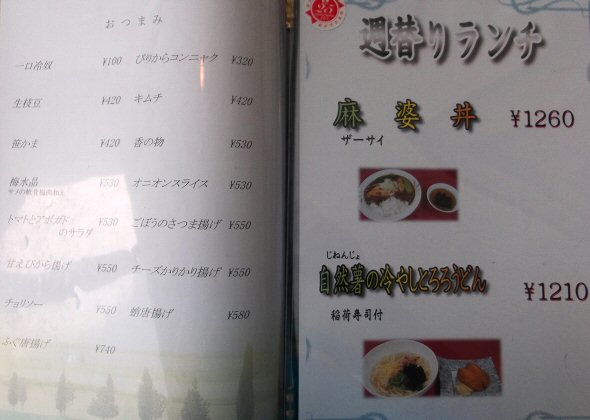 おつまみ
一口冷奴 ¥100
生枝豆 ¥420
笹かま ¥420
梅水晶 ¥530
サメの軟骨梅肉和え
トマトとアボガド ¥530
のサラダ
甘えびから揚げ ¥550
チョリソー ¥550
ふぐ唐揚げ ¥740
ぴりからコンニャク ¥320
キムチ ¥420
香の物 ¥530
オニオンスライス ¥530
ごぼうのさつま揚げ ¥550
チーズかりかり揚げ ¥550
蛸唐揚げ ¥580
週替りランチ
麻婆丼 ¥1260
ザーサイ
じねんじょ
自然薯の冷やしとろろうどん ¥1210
稲荷寿司付